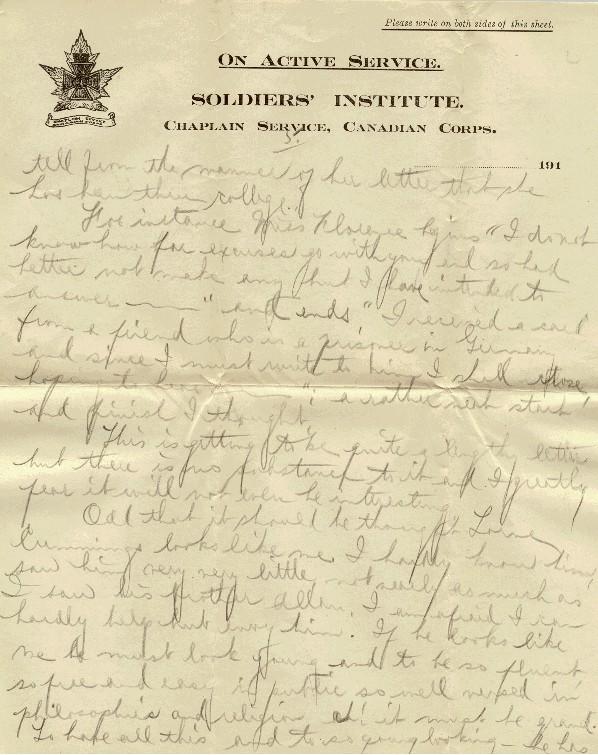 Please write on both sides of this sheet.
ON ACTIVE SERVICE.
SOLDIERS' INSTITUTE.
CHAPLAIN SERVICE, CANADIAN CORPS.
5.
191
tell from the manner of her letter that she
has been thru college.
For instance Miss Florence begins "I do not
know how far excuses go with you and so had
better not make any but I have intended to
answer ——" and ends "I received a card
from a friend who is a prisoner in Germany
and since I must write to him I shall close
hoping to hear ——"; a rather neat start
and finish I thought.
This is getting to be quite a lengthy letter
but there is no substance to it and I greatly
fear it will not even be interesting.
Odd that it should be thought Lorne
Cummings looks like me. I hardly know him,
saw him very very little, not nearly as much as
I saw his brother Allan. I am afraid I can
hardly help but envy him. If he looks like
me he must look young and to be so fluent
so free and easy in public so well versed in
philosophies and religion ah! it must be grand.
To have all this and to so young looking — he has